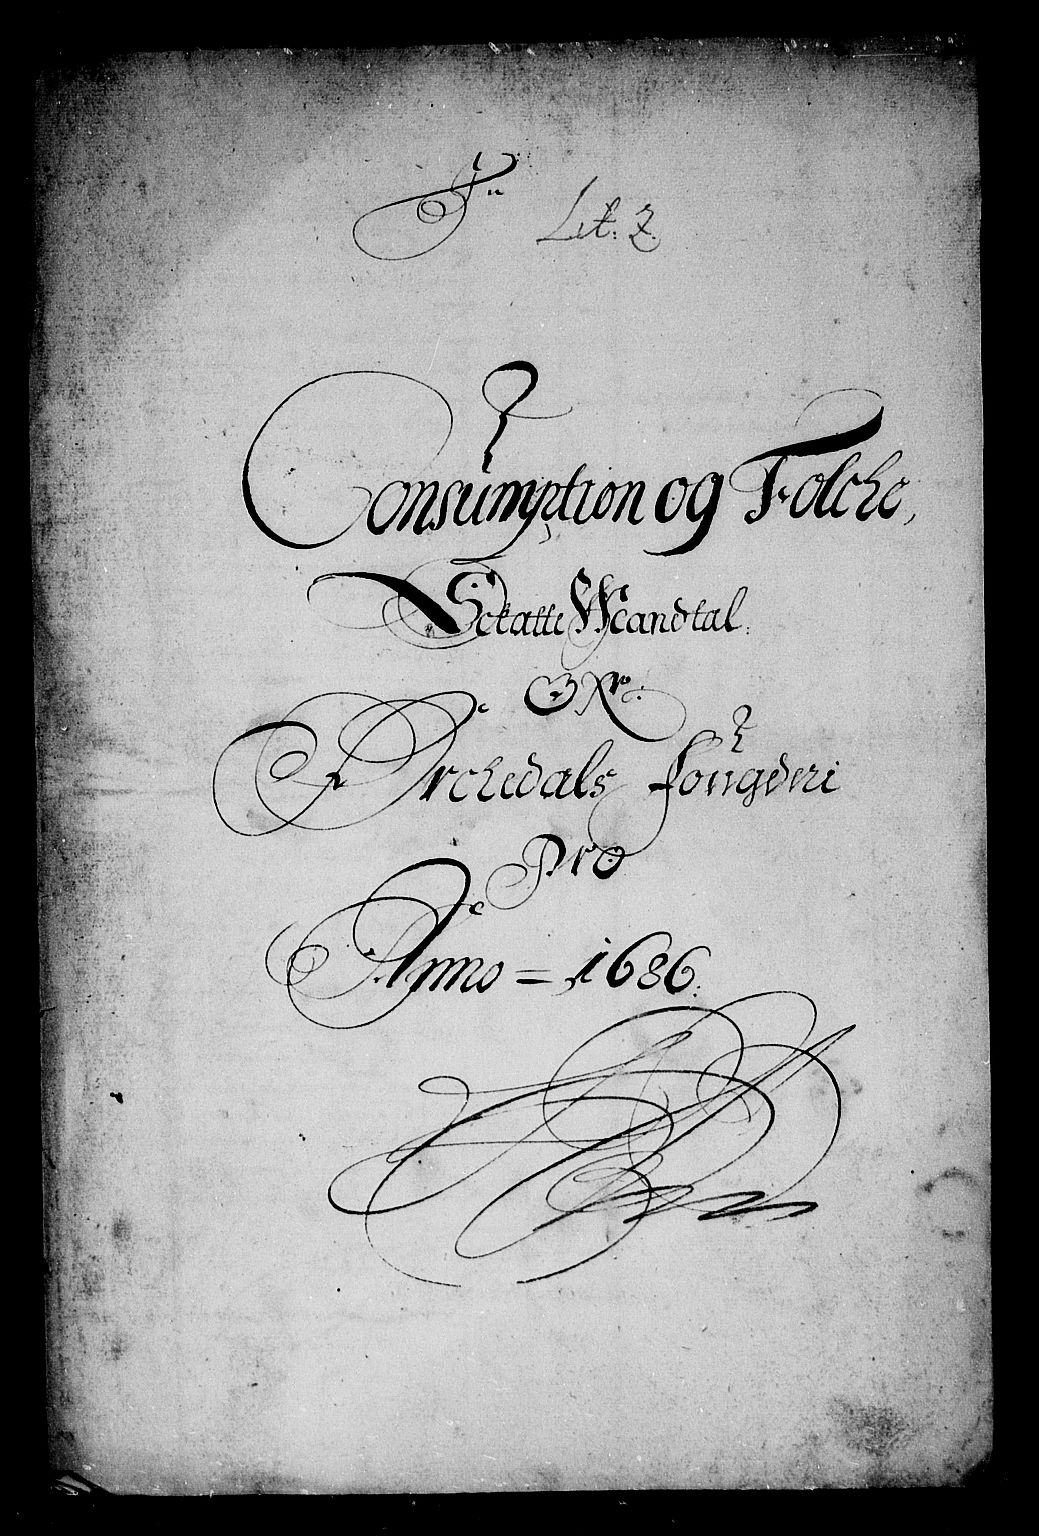 Lit: Z.
Consumption og Folche,
Skatte Mandtal.
Ofr.
Orchedals fougderi
Pro
Anno = 1686.